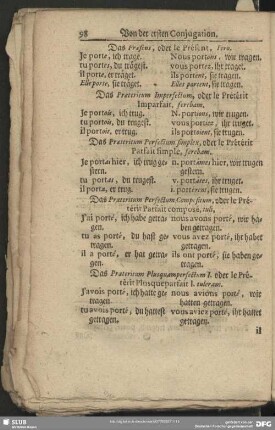 98 Von der ersten Conjugation.
Das Præsens, oder le Présent, fero.
Je porte, ich trage. Nous portons, wir tragen.
tu portes, du trägest. vous portez, ihr traget.
il porte, er träget. ils portent, sie tragen.
Elle porte, sie träget. Elles portent, sie tragen.
Das Præteritum Imperfectum, oder le Prétérit
Imparfait, ferebam.
Je portois, ich trug. N. portions, wir trugen.
tu portois, du trugest. vous portiez, ihr truget.
il portoit, er trug. ils portoient, sie trugen.
Das Præteritum Perfectum simplex, oder le Prétérit
Parfait simple, ferebam.
Je portai hier, ich trug ge- n. portâmes hier, wir trugen
stern. gestern.
tu portas, du trugest. v. portâtes, ihr truget.
il porta, er trug. i. portérent, sie trugen.
Das Præteritum Perfectum Compositum, oder le Pré-
térit Parfait composé, tuli,
J'ai porté, ich habe getra- nous avons porté, wir ha-
gen. ben getragen.
tu as porté, du hast ge- vous avez porté, ihr habet
tragen. getragen.
il a porté, er hat getra- ils ont porté, sie haben ge-
gen. tragen.
Das Præteritum Plusquamperfectum I. oder le Pré-
térit Plusqueparfait I. tuleram.
J'avois porté, ich hatte ge- nous avions porté, wir
tragen. hatten getragen.
tu avois porté, du hattest vous aviez porté, ihr hattet
getragen. getragen.
il
SLUB